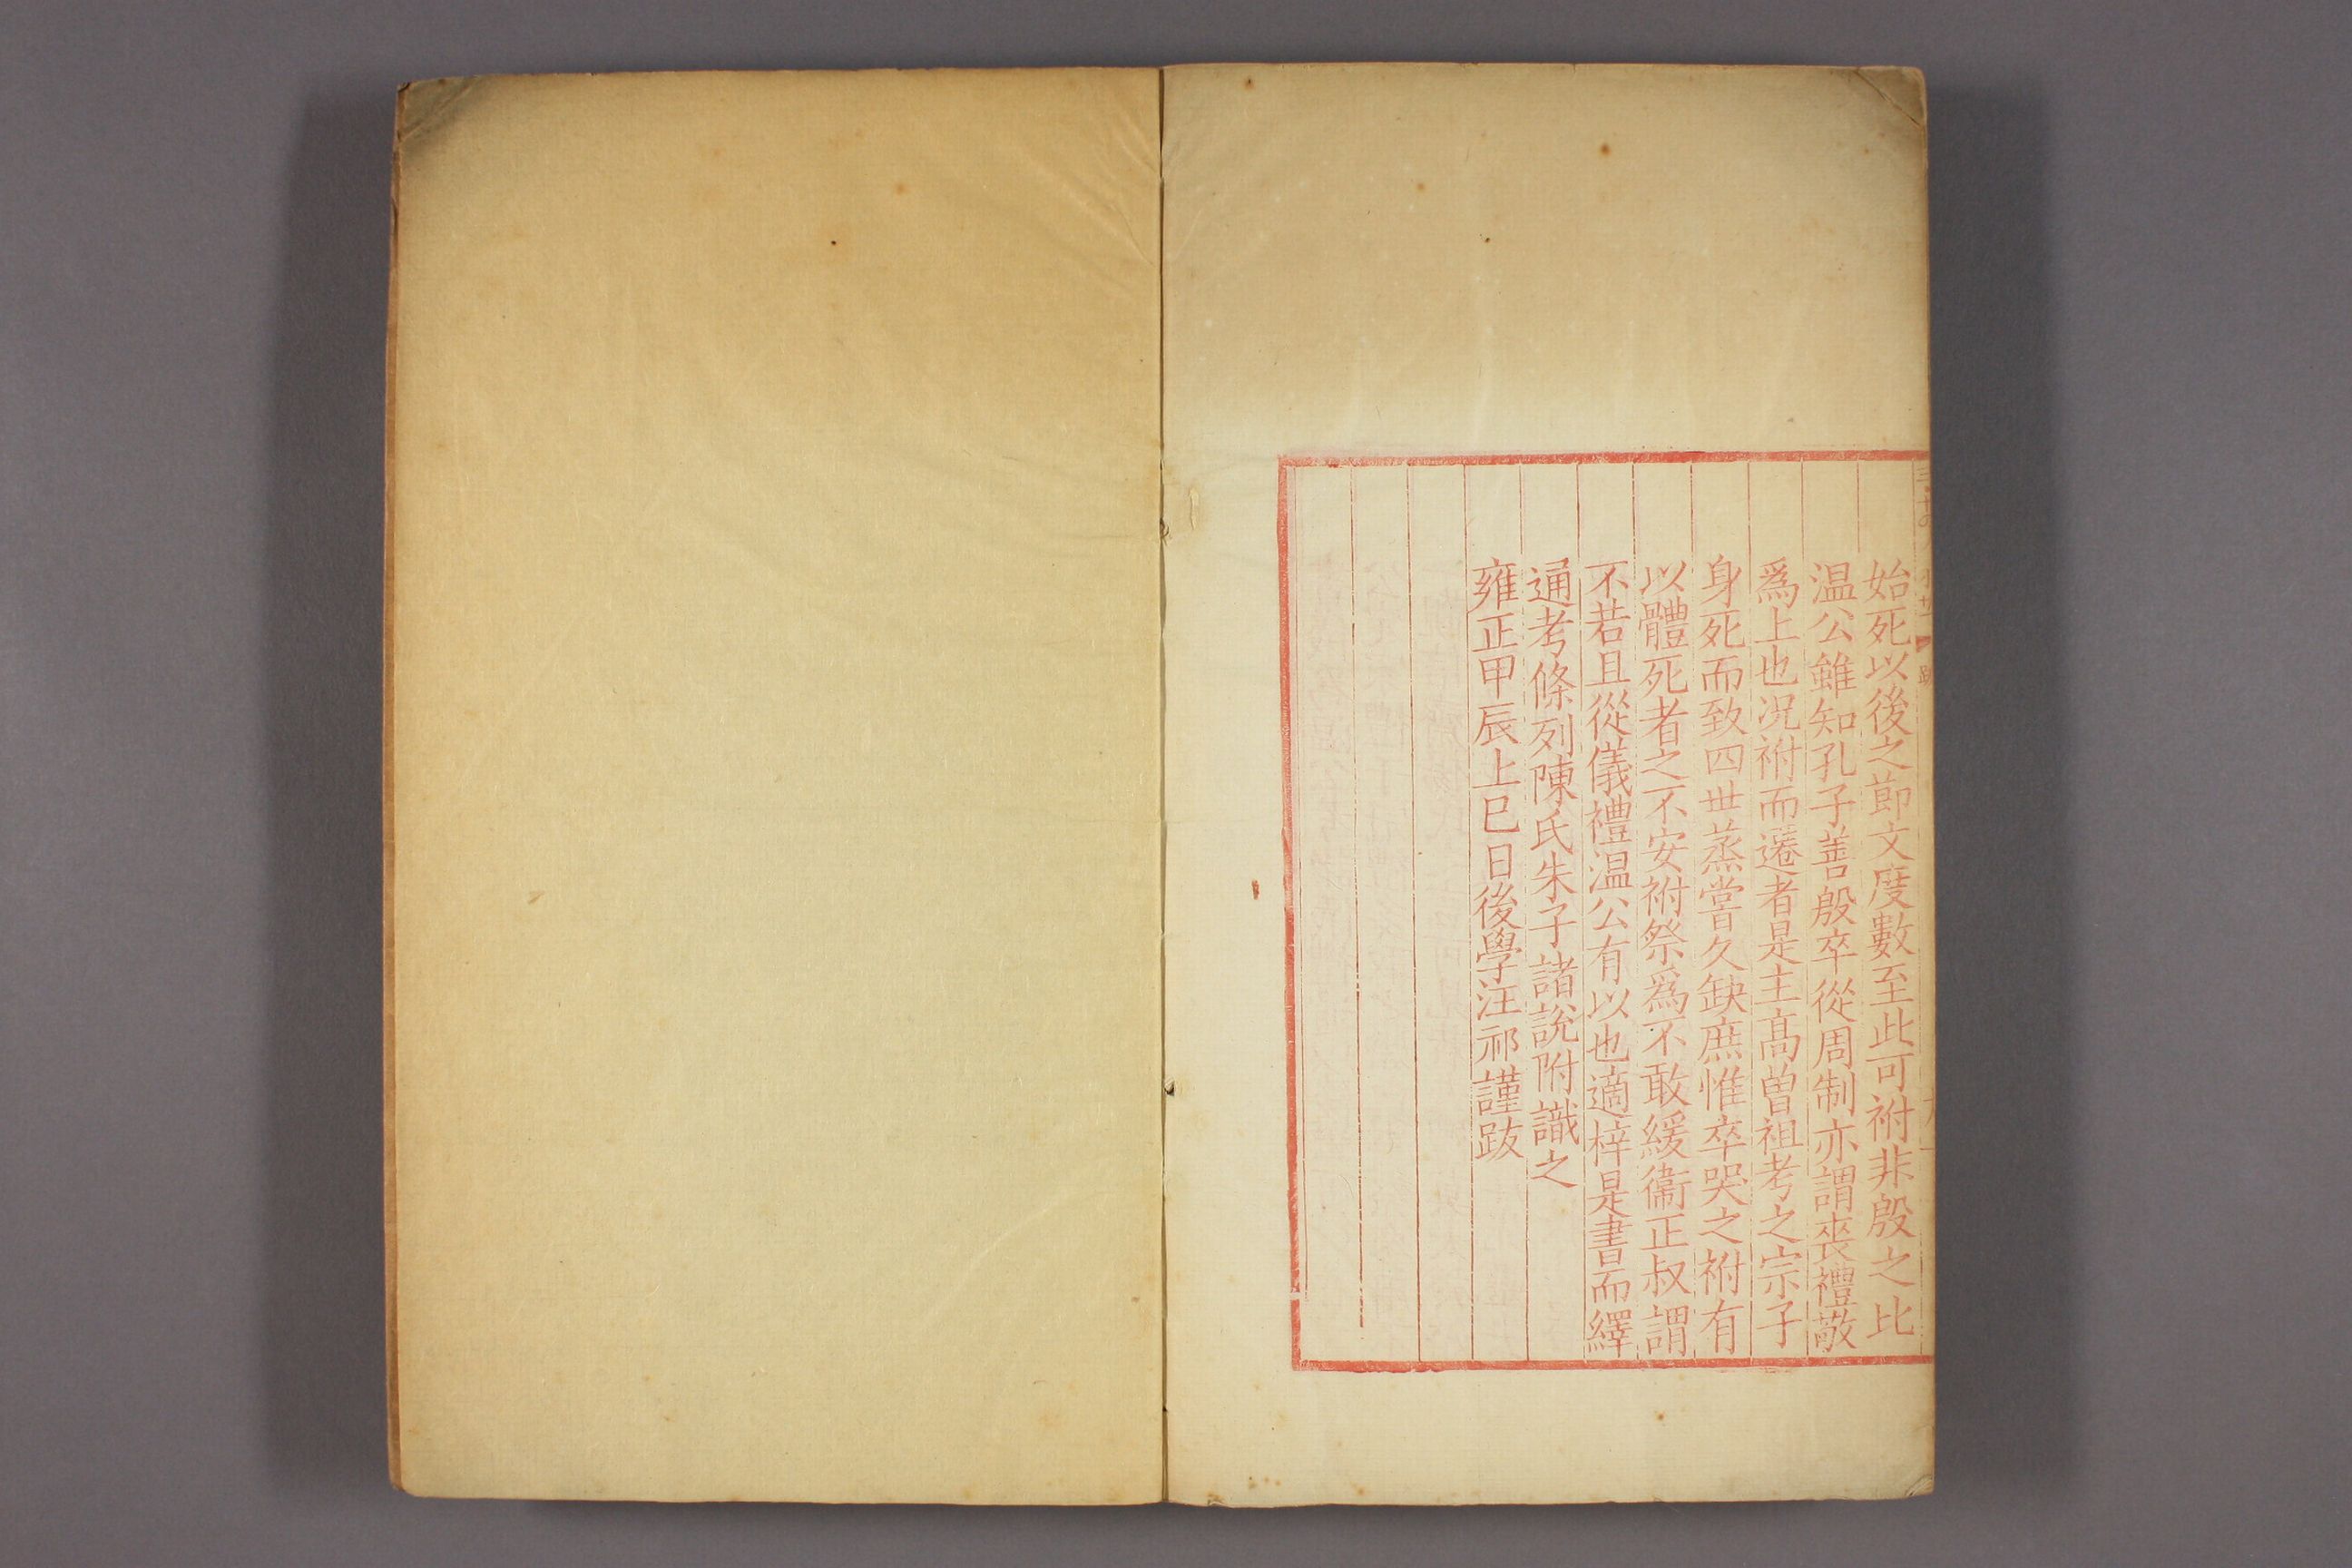 始死以後之節文度數至此可祔非殷之比
温公雖知孔子善殷卒從周制亦謂喪禮敬
爲上也况祔而遷者是主高曽祖考之宗子
身死而致四世蒸嘗久缺庶惟卒哭之祔有
以體死者之不安祔祭爲不敢緩衞正叔謂
不若且從儀禮温公有以也適梓是書而繹
通考條列陳氏朱子諸說附識之
雍正甲辰上巳日後學汪祁謹跋